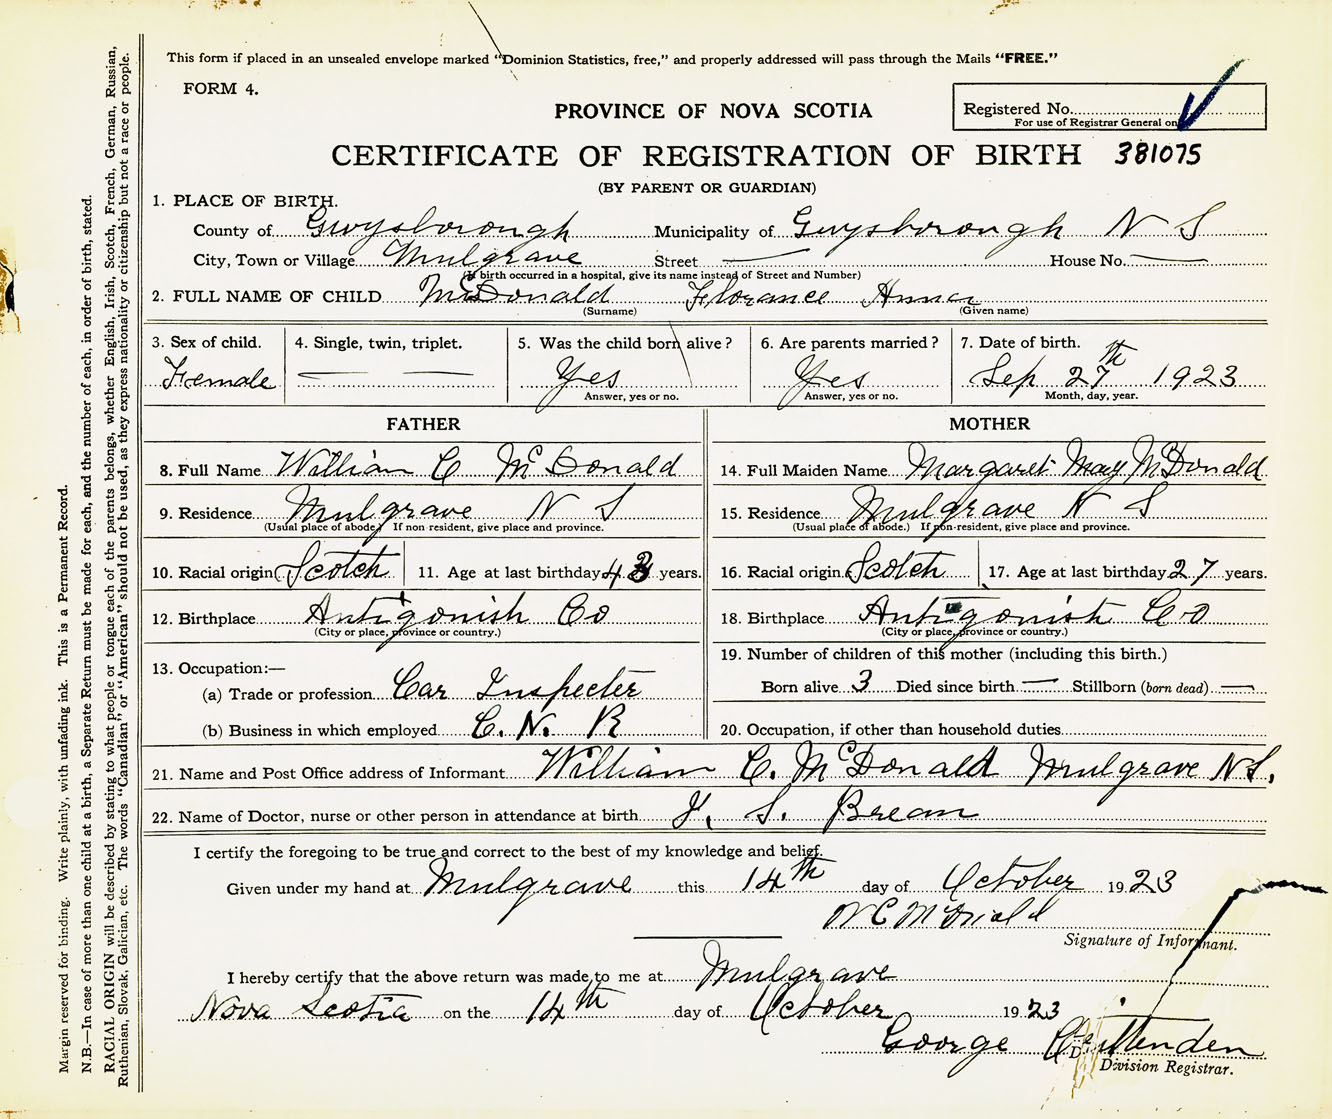 This form if placed in an unsealed envelope marked "Dominion Statistics, free," and properly addressed will pass through the Mails "FREE."
FORM 4.
PROVINCE OF NOVA SCOTIA
Registered No.
For use of Registrar General on
CERTIFICATE OF REGISTRATION OF BIRTH 381075
(BY PARENT OR GUARDIAN)
1. PLACE OF BIRTH.
County of Guysborough Municipality of Guysborough N S
City, Town or Village Mulgrave Street — House No. —
(If birth occurred in a hospital, give its name instead of Street and Number)
2. FULL NAME OF CHILD McDonald Florance Anna
(Surname) (Given name)
3. Sex of child. 4. Single, twin, triplet. 5. Was the child born alive? 6. Are parents married? 7. Date of birth.
Female — — Yes Yes Sep 27th 1923
Answer, yes or no. Answer, yes or no. Month, day, year.
FATHER MOTHER
8. Full Name William C McDonald 14. Full Maiden Name Margaret May McDonald
9. Residence Mulgrave N S 15. Residence Mulgrave N S
(Usual place of abode.) If non resident, give place and province. (Usual place of abode.) If non-resident, give place and province.
10. Racial origin Scotch 11. Age at last birthday 43 years. 16. Racial origin Scotch 17. Age at last birthday 27 years.
12. Birthplace Antigonish Co 18. Birthplace Antigonish Co
(City or place, province or country.) (City or place, province or country.)
13. Occupation:— 19. Number of children of this mother (including this birth.)
(a) Trade or profession Car Inspecter Born alive 3 Died since birth — Stillborn (born dead) —
(b) Business in which employed C. N. R 20. Occupation, if other than household duties
21. Name and Post Office address of Informant William C. McDonald Mulgrave N S.
22. Name of Doctor, nurse or other person in attendance at birth S. Brean
I certify the foregoing to be true and correct to the best of my knowledge and belief.
Given under my hand at Mulgrave this 14th day of October 1923
W C McDonald
Signature of Informant.
I hereby certify that the above return was made to me at Mulgrave
Nova Scotia on the 14th day of October 1923
George Chittenden
Division Registrar.
Margin reserved for binding. Write plainly, with unfading ink. This is a Permanent Record.
N.B.—In case of more than one child at a birth, a Separate Return must be made for each, and the number of each, in order of birth, stated.
RACIAL ORIGIN will be described by stating to what people or tongue each of the parents belongs, whether English, Irish, Scotch, French, German, Russian,
Ruthenian, Slovak, Galician, etc. The words "Canadian" or "American" should not be used, as they express nationality or citizenship but not a race or people.